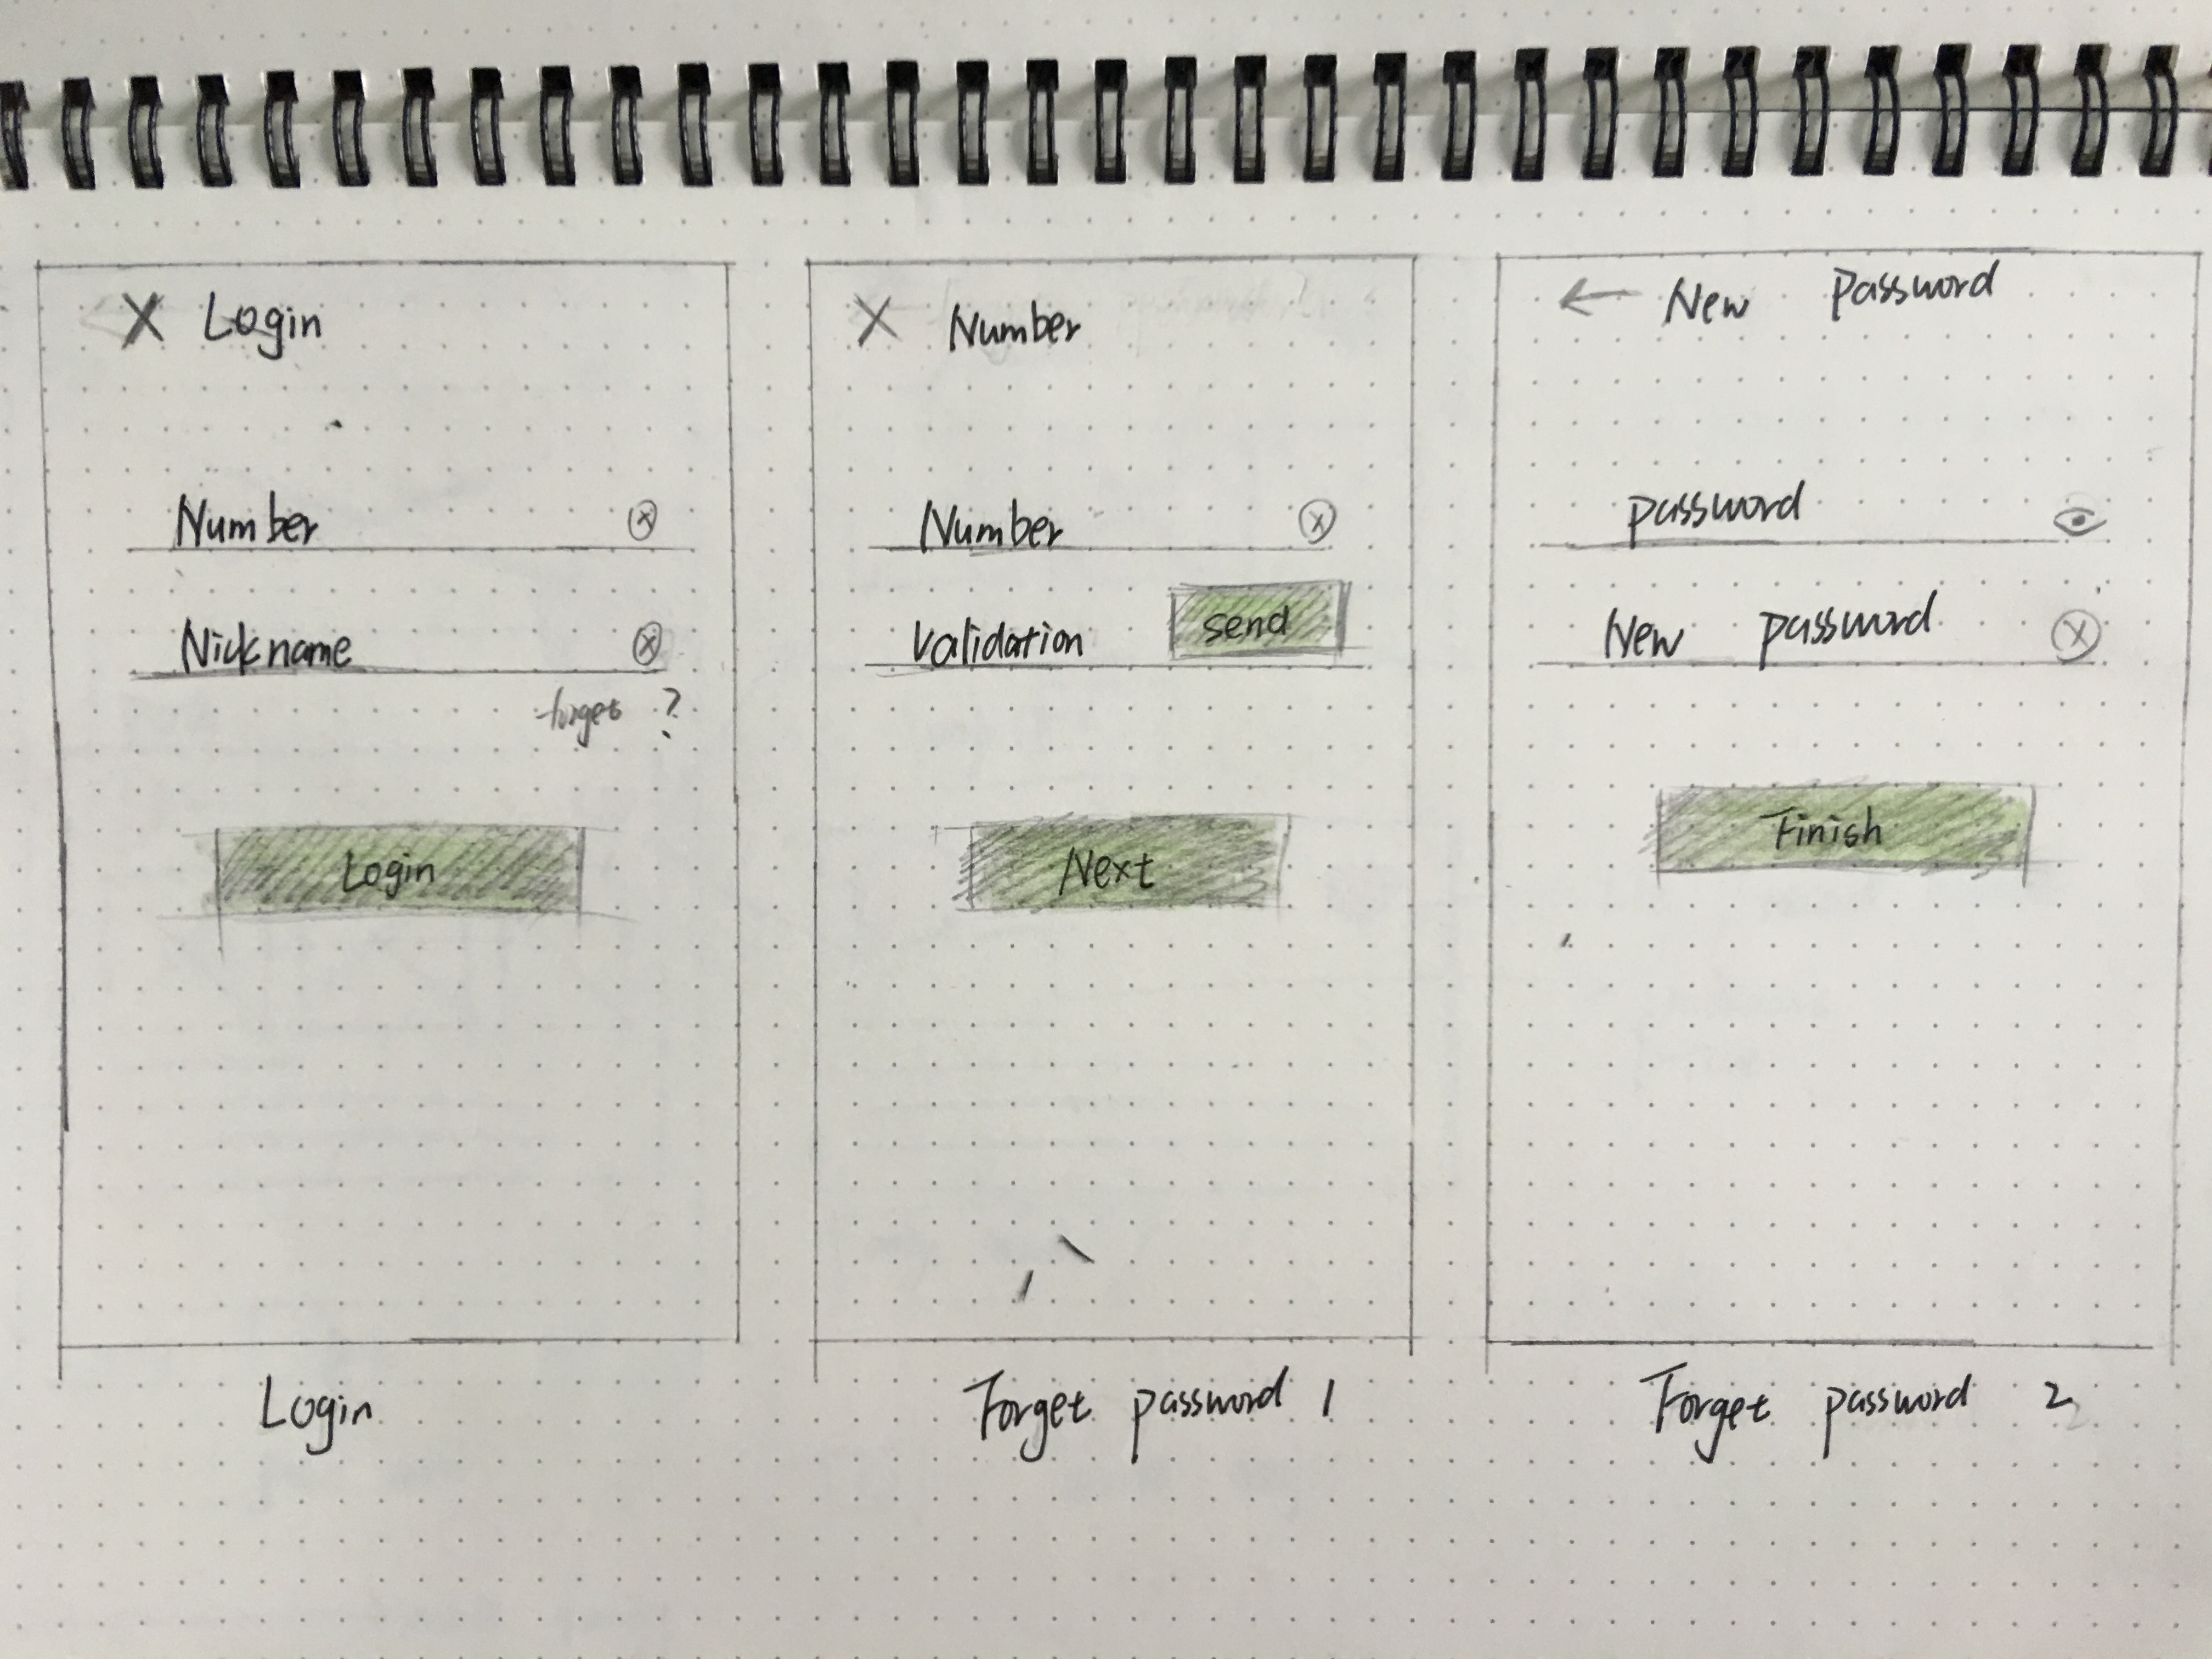 X Login
Number
Nickname
forget ?
Login
Login
X Number
Number
Validation send
Next
Forget password 1
← New Password
password
New password
Finish
Forget password 2